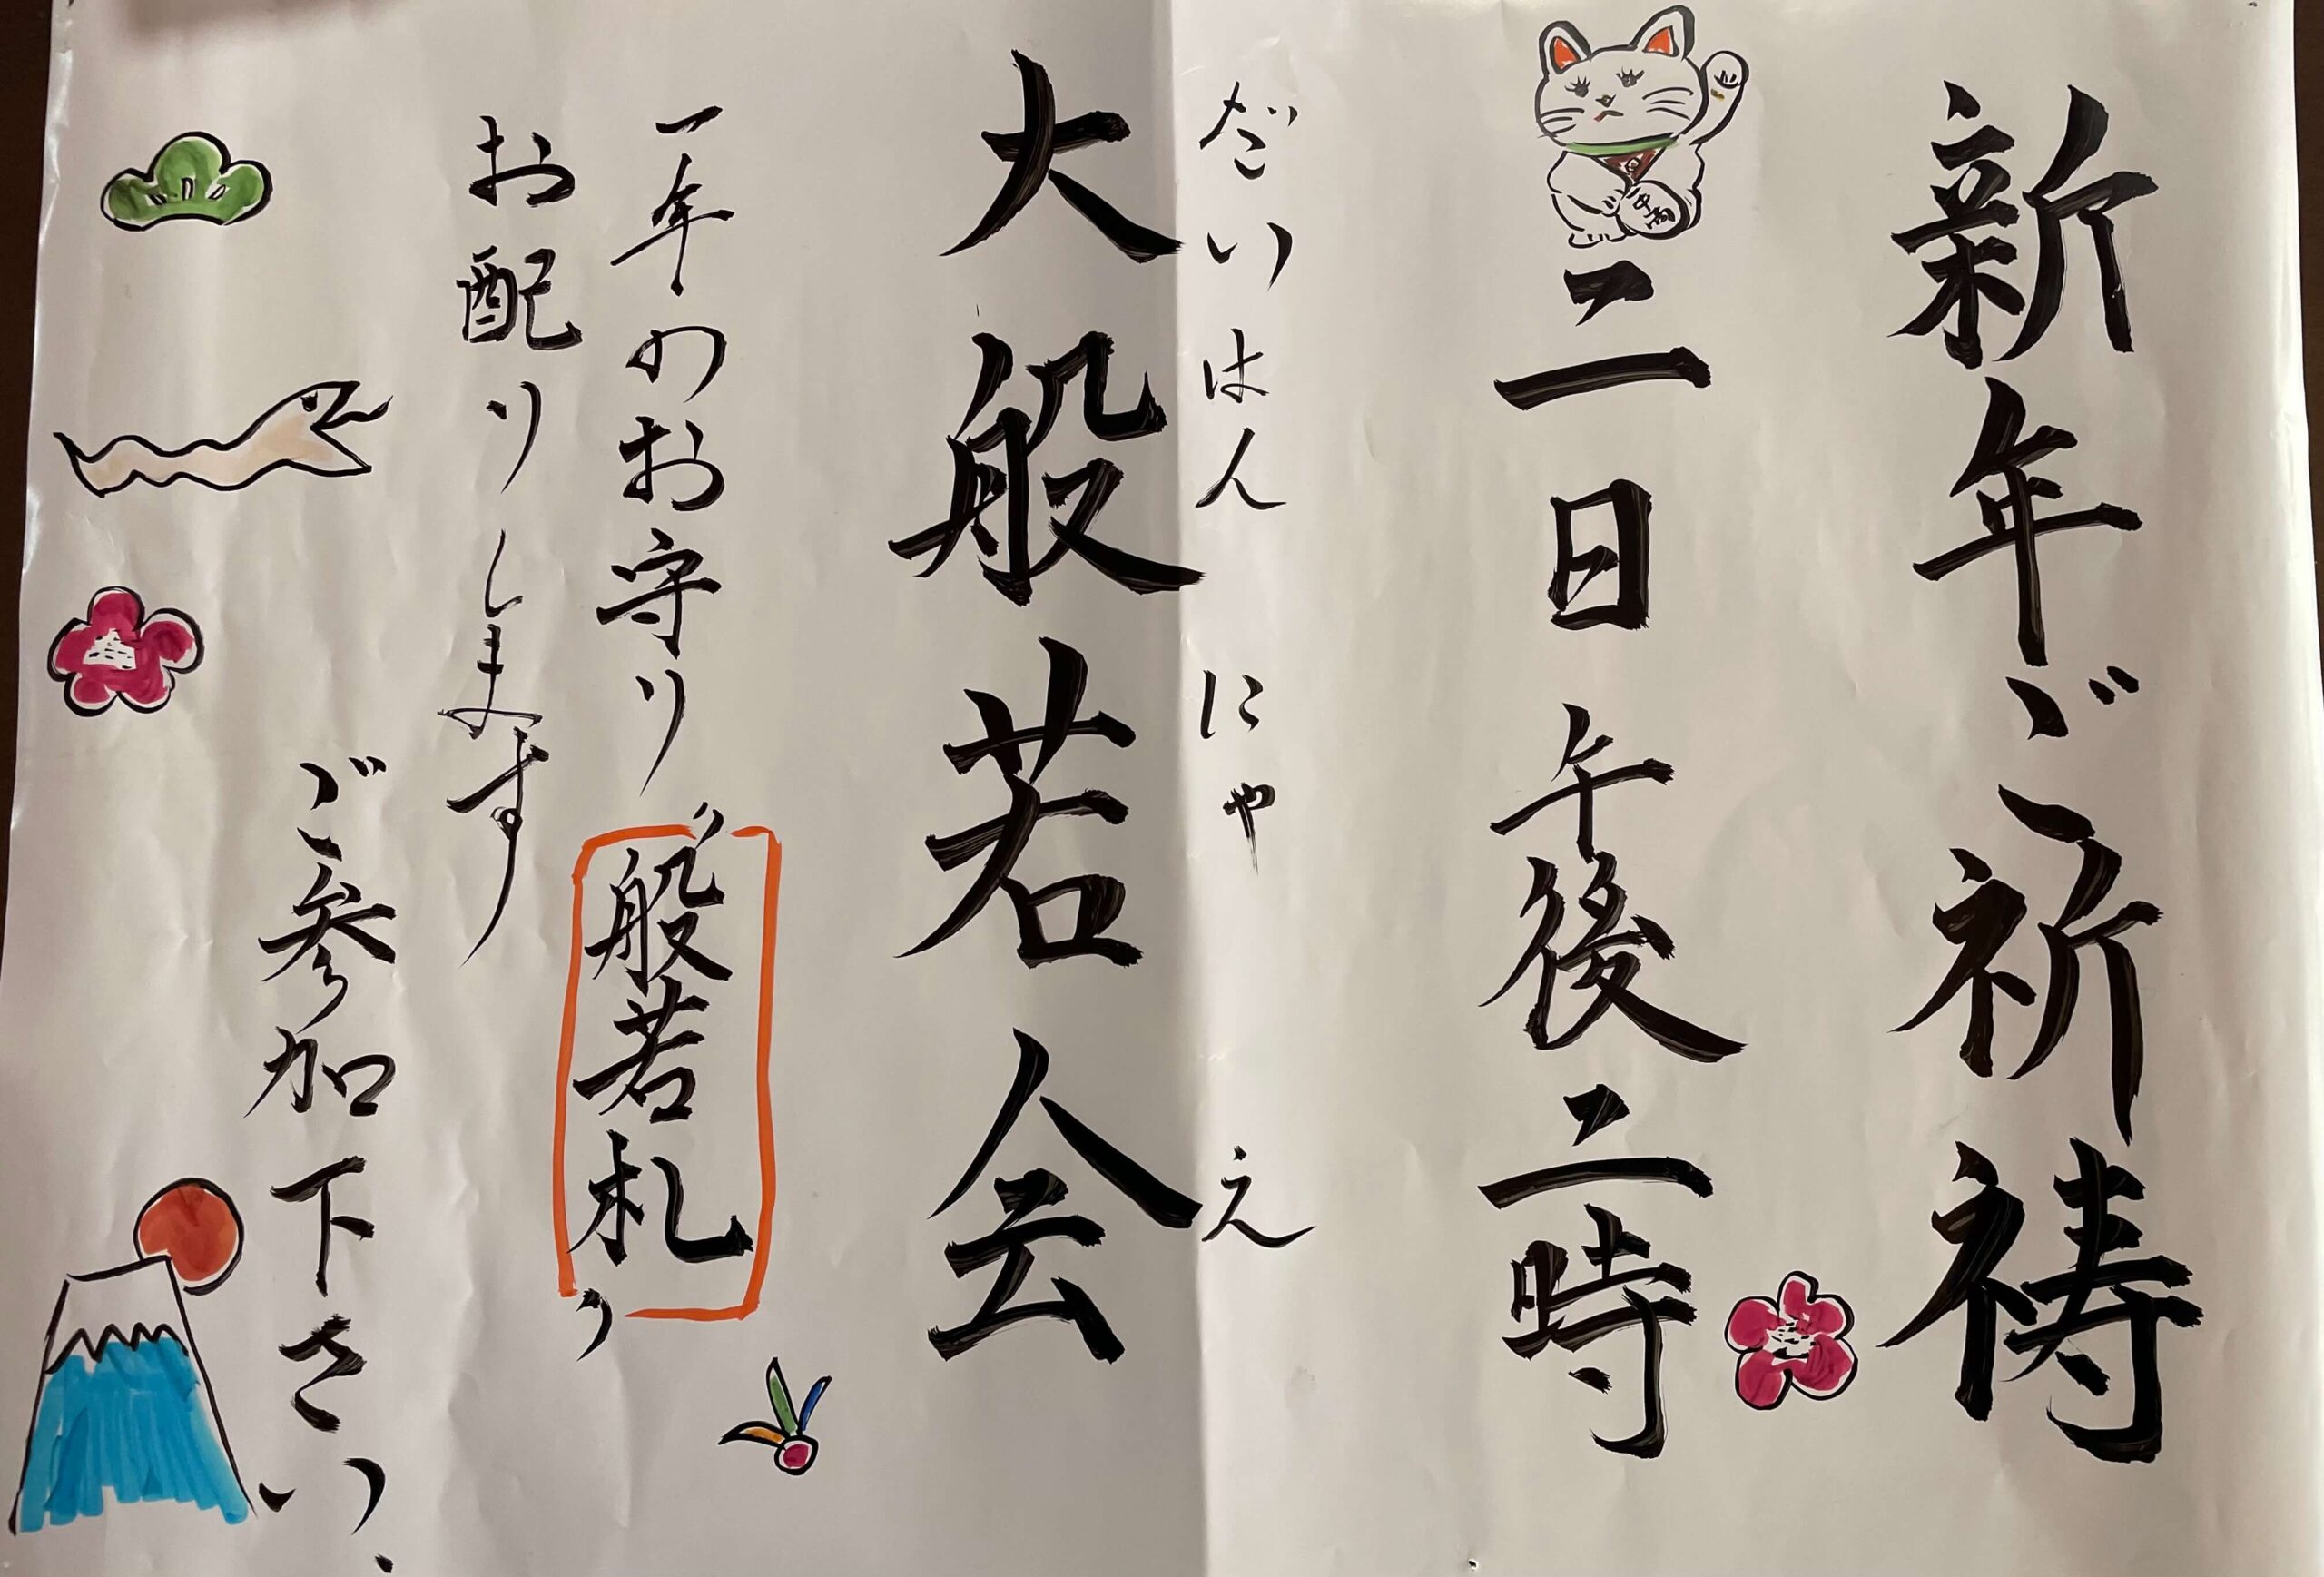 新年ご祈祷
二日午後二時
だいはんにゃえ
大般若会
一年のお守り〝般若札〟
お配りします
ご参加下さい、